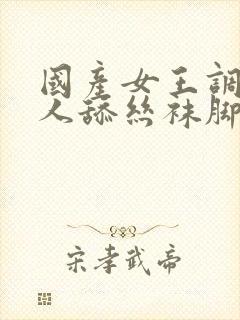 國產女王調
人舔丝袜脚
宋孝武帝